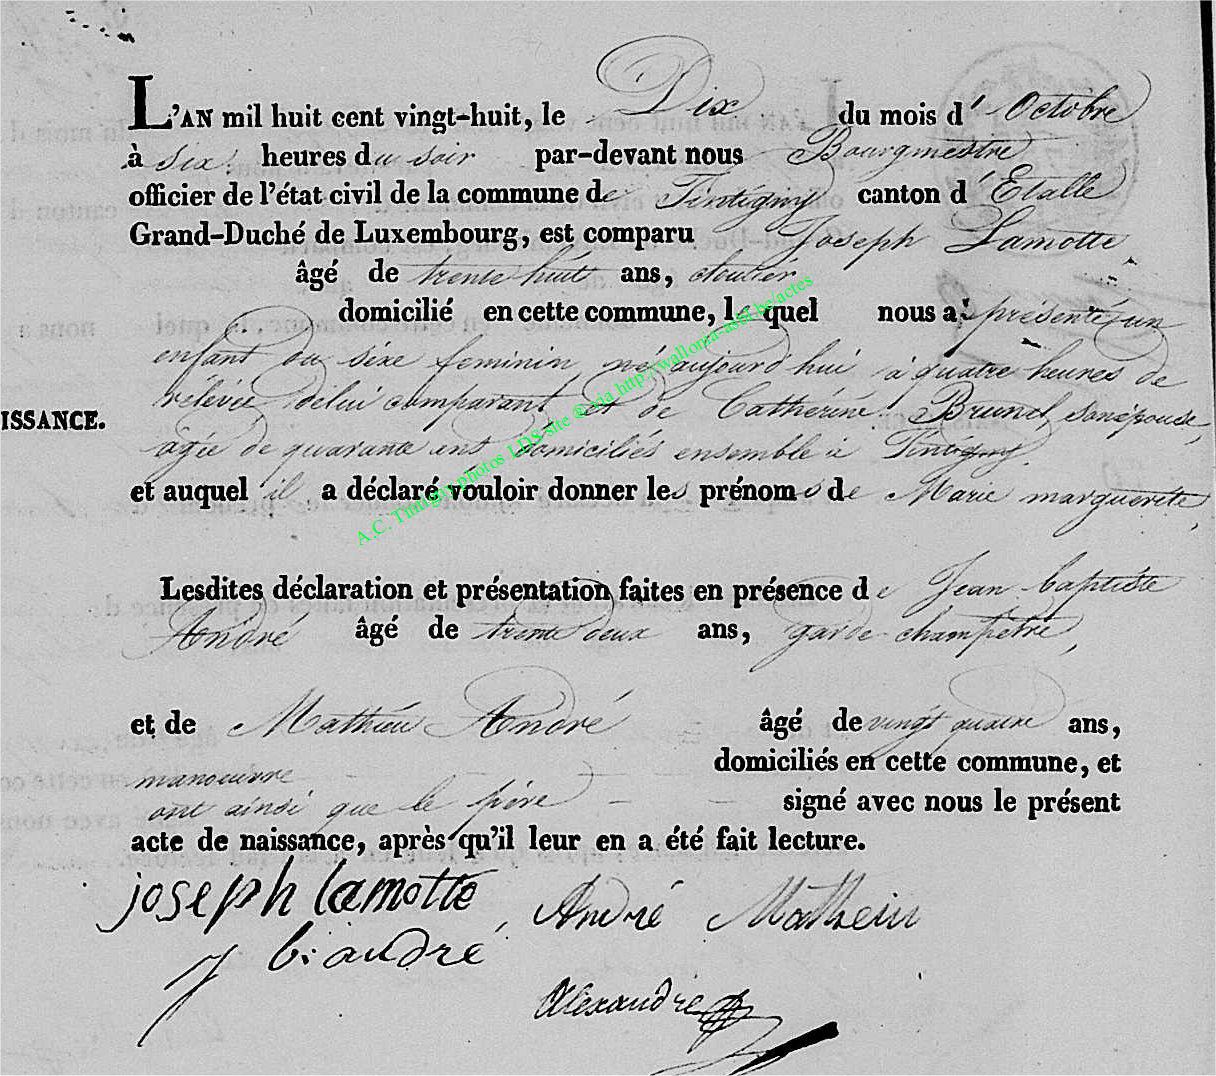 L'AN mil huit cent vingt-huit, le Dix du mois d' Octobre
à six heures du soir par-devant nous Bourgmestre
officier de l'état civil de la commune de Tintigny canton d' Etalle
Grand-Duché de Luxembourg, est comparu Joseph Lamotte
âgé de trente huit ans, cloutier
domicilié en cette commune, le quel nous a présenté un
enfant du sixe feminin né aujourd'hui à quatre heures de
rélévée delui comparant et de Cathérine Brunel son épouse,
ISSANCE.
agée de quarante ans domiciliés ensemble à Tintigny
et auquel il a déclaré vouloir donner les prénoms de Marie marguerete,
Lesdites déclaration et présentation faites en présence de Jean baptiste
André âgé de trente deux ans, garde champetre,
et de Mathieu André âgé de vingt quatre ans,
manoeuvre domiciliés en cette commune, et
ont ainsi que le père signé avec nous le présent
acte de naissance, après qu'il leur en a été fait lecture.
joseph lamotte, André Mathieu
j b andré
Alexandre
A.C. Tintigny photos LDS site @ via http://wallonia-asbl.be/actes